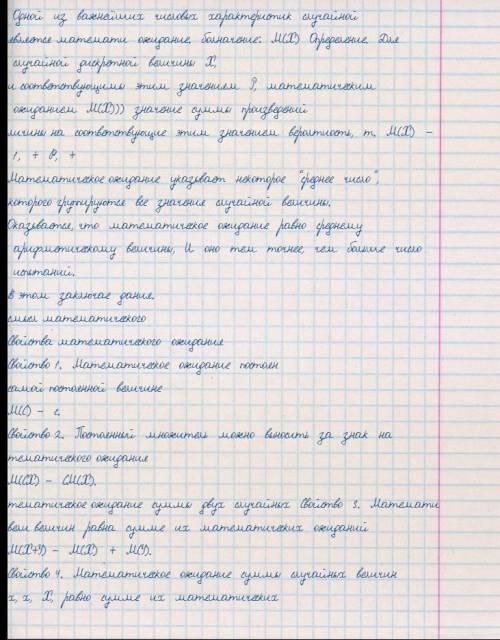 Одной из важнейших числовых характеристик случайной
является математи ожидание. бозначение: М(Х) Определение. Для
случайной дискретной величины Х,
и соответствующими этим значением Р, математическим
ожиданием М(Х))) значение суммы произведений
личины на соответствующие этим значением вероятность, т. М(Х) -
1, + Р, +
Математическое ожидание указывает некоторое "среднее число",
которого группируются все значения случайной величины.
Оказывается, что математическое ожидание равно среднему
арифметическому величины, И оно тем точнее, чем больше число
испытаний.
в этом заключае дания.
смысл математического
Свойства математического ожидания
Свойство 1. Математическое ожидание постоян
самой постоянной величине
М(С) - с.
Свойство 2. Постоянный множитель можно выносить за знак на
тематического ожидания
М(СХ) - СМ(Х).
тематическое ожидание суммы двух случайных Свойство 3. Математи
вем величин равна сумме их математических ожиданий
М(Х+У) - М(Х) + М(У).
Свойство 4. Математическое ожидание суммы случайных величин
х, х, Х, равно сумме их математических